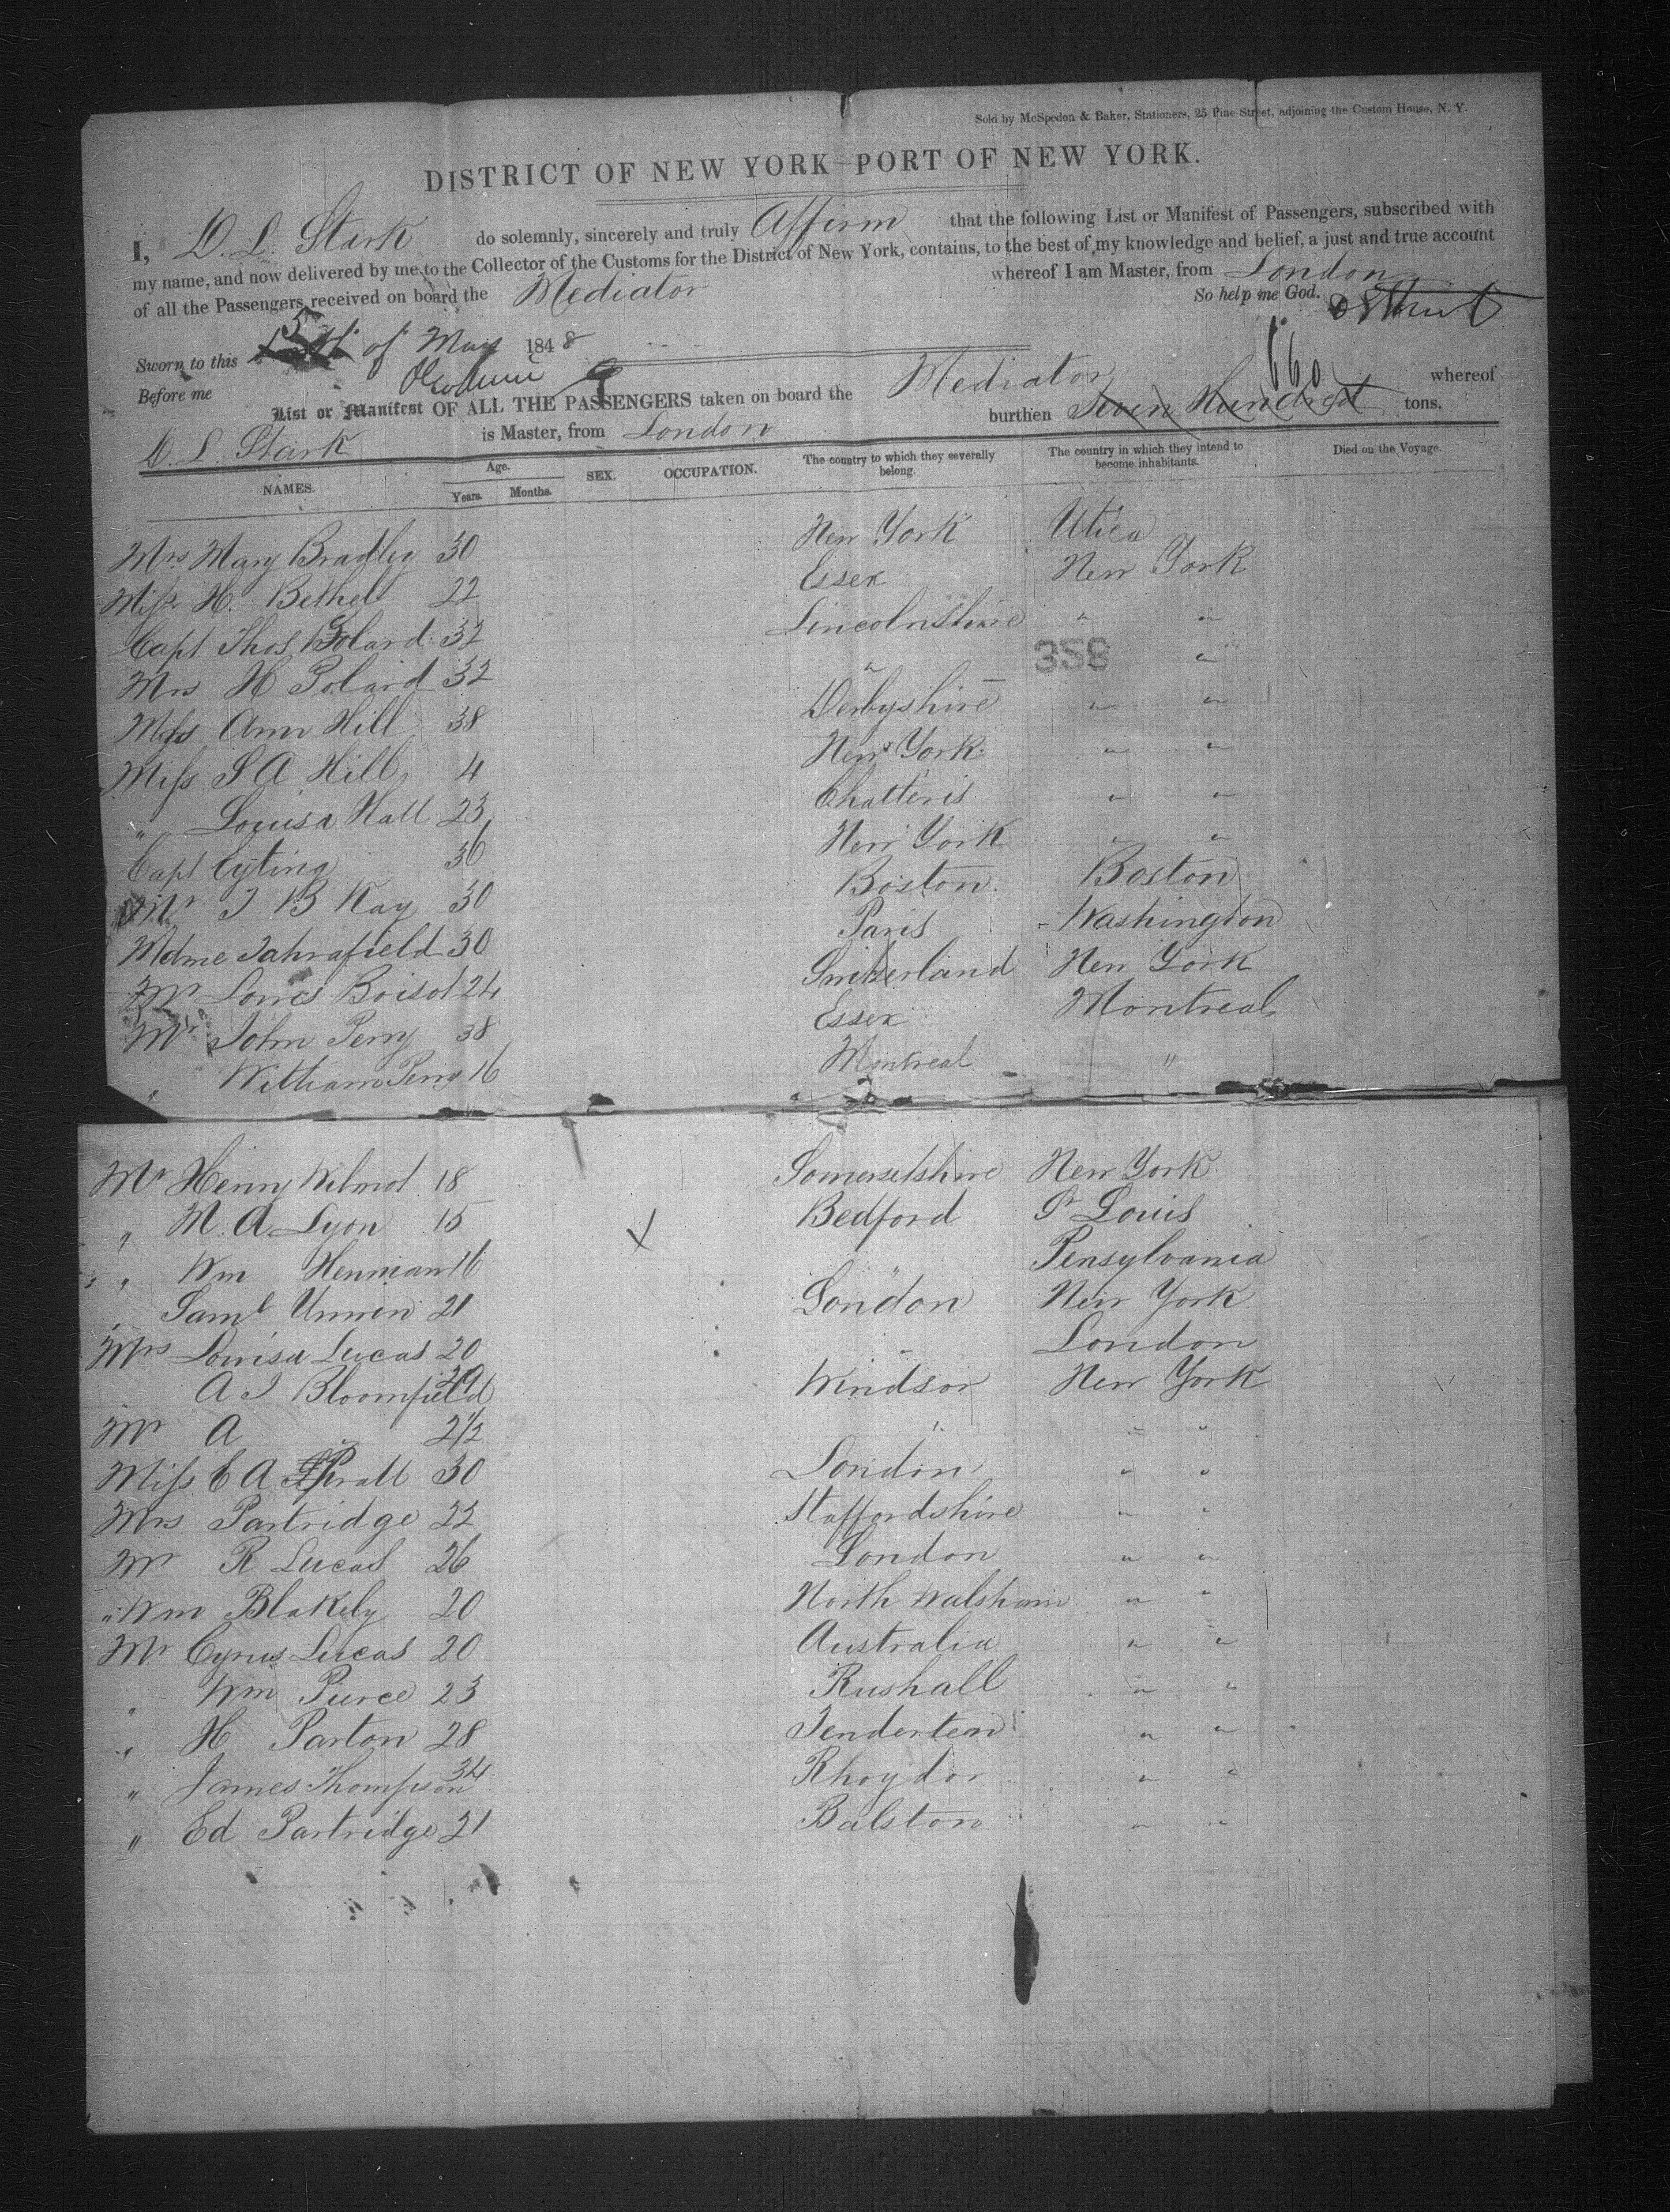 Sold by McSpedon & Baker, Stationers, 25 Pine Street, adjoining the Custom House, N. Y.
DISTRICT OF NEW YORK—PORT OF NEW YORK.
I, D. L. Stark do solemnly, sincerely and truly Affirm that the following List or Manifest of Passengers, subscribed with
my name, and now delivered by me to the Collector of the Customs for the District of New York, contains, to the best of my knowledge and belief, a just and true account
of all the Passengers received on board the Mediator whereof I am Master, from London
So help me God.
Sworn to this 5 of May 1848
Before me
List or Manifest OF ALL THE PASSENGERS taken on board the Mediator whereof
D. L. Stark is Master, from London burthen Seven Hundred 660 tons.
NAMES. Age. Years. Months. SEX. OCCUPATION. The country to which they severally belong. The country in which they intend to become inhabitants. Died on the Voyage.
Mrs Mary Bradley 30 New York Utica
Miss H. Bethel 22 Essex New York
Capt Thos Polard 32 Lincolnshire " "
Mrs H Polard 32 " 358 "
Mrs Ann Hill 38 Derbyshire " "
Miss S A Hill 4 New York " "
" Louisa Hall 23 Chatteris " "
Capt Eyting 36 New York " "
Mr J B Kay 30 Boston Boston
Mdme 30 Paris Washington
Mr Louis Boisot 24 Switzerland New York
Mr John Perry 38 Essex Montreal
" William Perry 16 Montreal "
Mr Henry Wilmot 18 Somersetshire New York
" M. A. Lyon 15 Bedford St Louis
" Wm Henman 16 " Pensylvania
" Saml 21 London New York
Mrs Louisa Lucas 20 " London
A J Bloomfield 29 Windsor New York
Mr A " 2½ " " "
Miss E A Pratt 30 London " "
Mrs Partridge 22 Staffordshire " "
Mr R Lucas 26 London " "
" Wm Blakely 20 North Walsham " "
Mr Cyrus Lucas 20 Australia " "
" Wm Pierce 23 Rushall " "
" H Parton 28 " "
" James Thompson 34 " "
" Ed Partridge 21 Balston " "